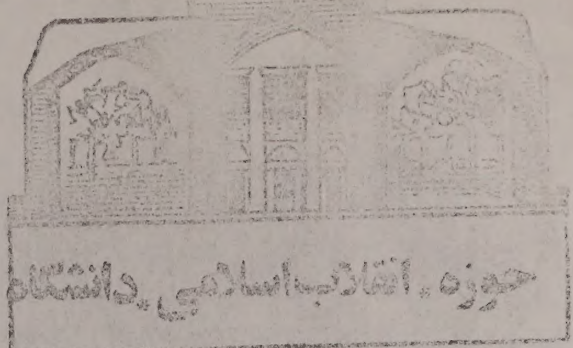 حوزه، انقلاب اسلامی، دانشگاه